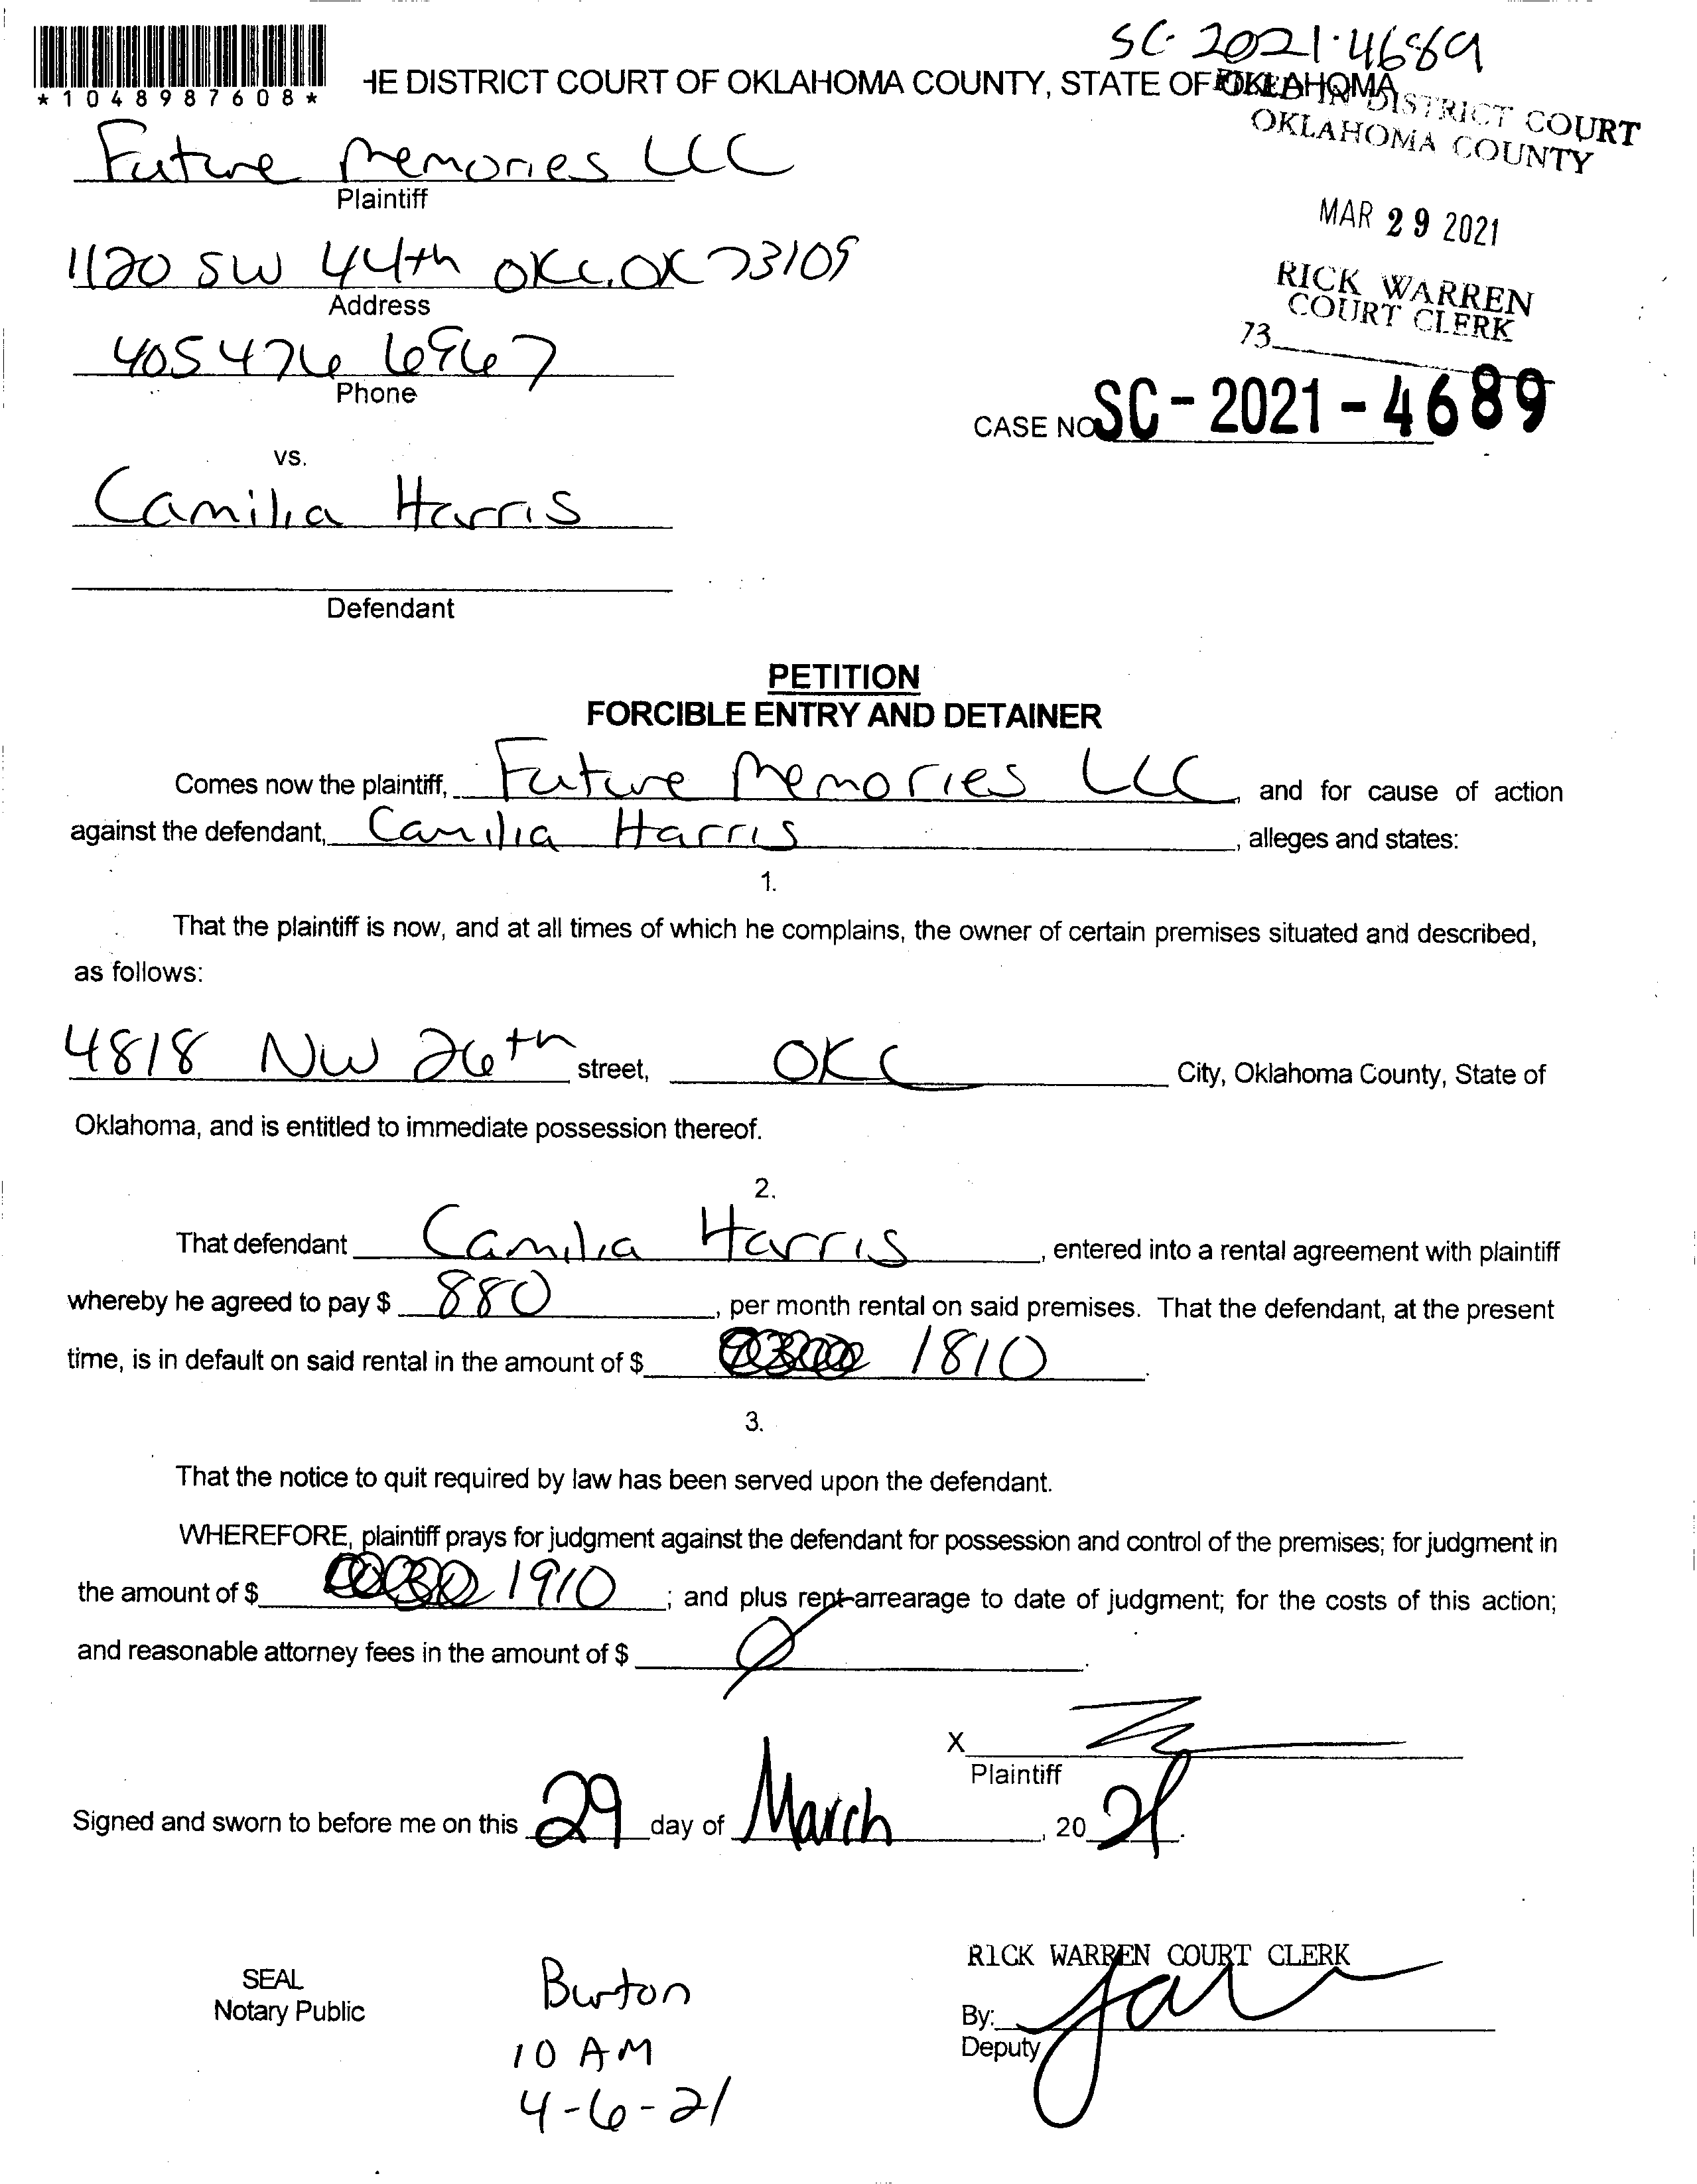 SC-2021-4689
*1048987608*
HE DISTRICT COURT OF OKLAHOMA COUNTY, STATE OF OKLAHOMA
FILED IN DISTRICT COURT
OKLAHOMA COUNTY
Future Memories LLC
Plaintiff
MAR 29 2021
1120 SW 44th OKC, OK 73109
Address
RICK WARREN
COURT CLERK
73
405 476 6967
Phone
CASE NO SC-2021-4689
vs.
Camilia Harris
Defendant
PETITION
FORCIBLE ENTRY AND DETAINER
Comes now the plaintiff, Future Memories LLC, and for cause of action
against the defendant, Camilia Harris, alleges and states:
1.
That the plaintiff is now, and at all times of which he complains, the owner of certain premises situated and described,
as follows:
4818 NW 26th street, OKC City, Oklahoma County, State of
Oklahoma, and is entitled to immediate possession thereof.
2.
That defendant Camilia Harris, entered into a rental agreement with plaintiff
whereby he agreed to pay $ 880, per month rental on said premises. That the defendant, at the present
time, is in default on said rental in the amount of $ 1810.
3.
That the notice to quit required by law has been served upon the defendant.
WHEREFORE, plaintiff prays for judgment against the defendant for possession and control of the premises; for judgment in
the amount of $ 1910; and plus rent-arrearage to date of judgment; for the costs of this action;
and reasonable attorney fees in the amount of $ Ø.
X
Plaintiff
Signed and sworn to before me on this 29 day of March, 2021.
SEAL
Notary Public
Burton
10 AM
4-6-21
RICK WARREN COURT CLERK
By:
Deputy